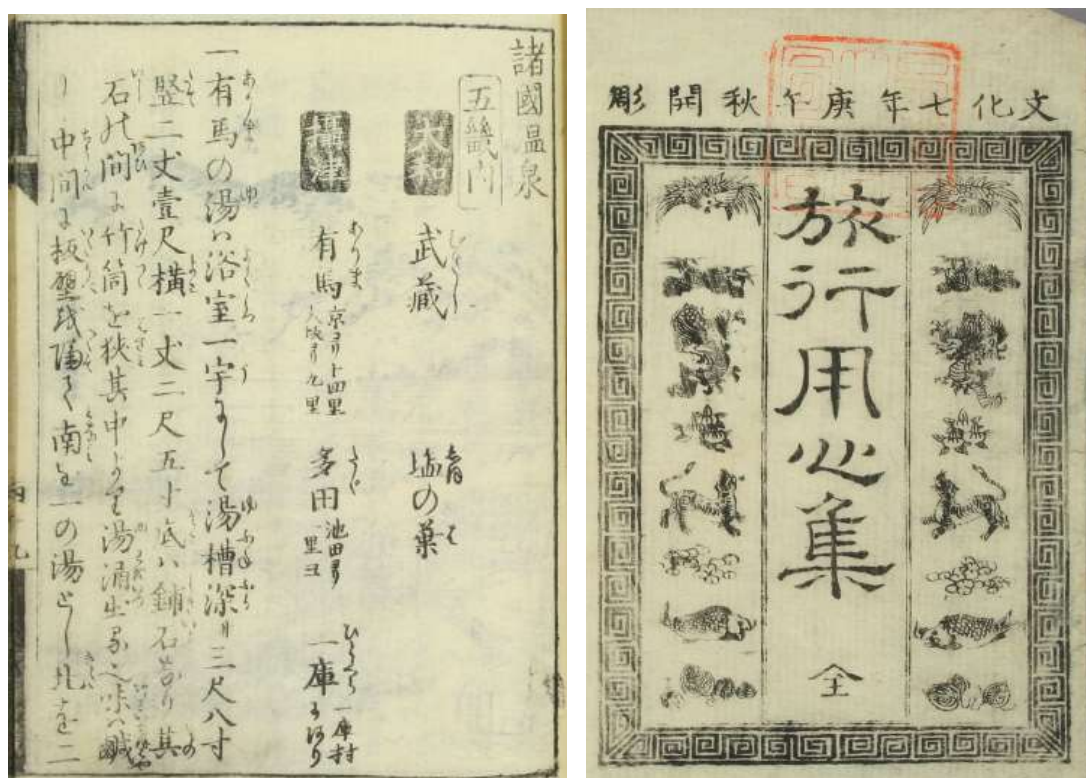 文化七年庚午秋開彫
旅行用心集 全
諸國温泉
五畿内
大和 武藏 塩の葉
攝津 有馬 京ヨリ十四里 大坂ヨリ九里 多田 池田ヨリ 一里ヨ 一庫 一庫村にあり
一有馬の湯ハ浴室一宇にして湯槽深サ三尺八寸
竪二丈壹尺横一丈二尺五寸底ハ鋪石なり其
石の間に竹筒を狭其中より湯涌出る之味ハ鹹
し中間に板壁を隔て南を一の湯とし北を二